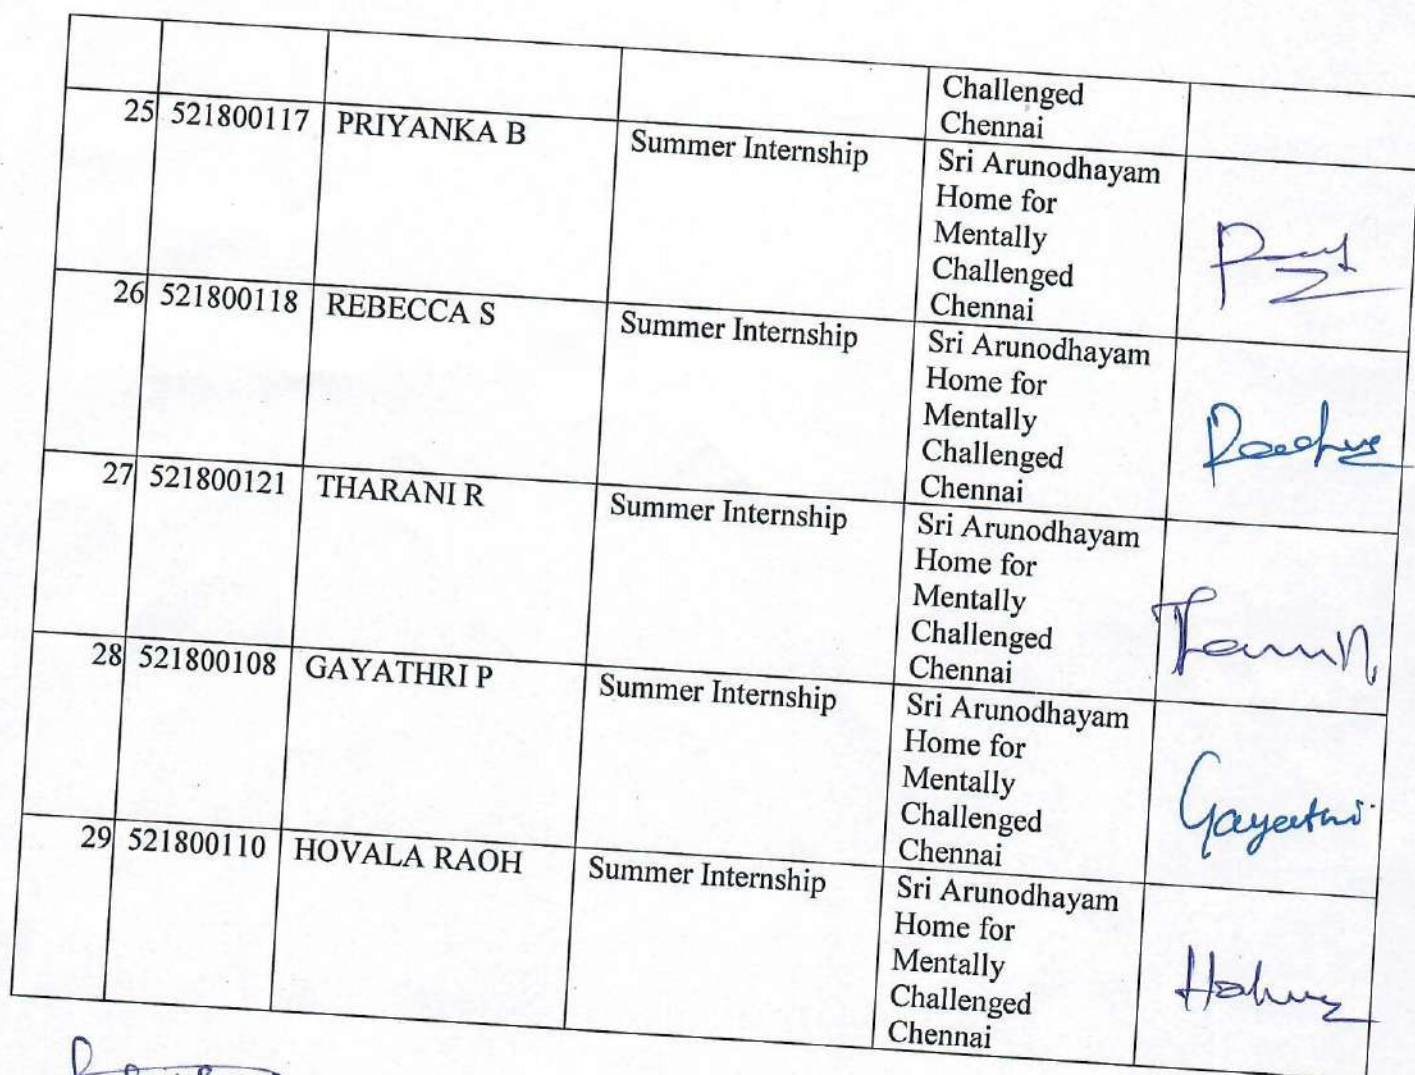 Challenged
Chennai
25 521800117 PRIYANKA B Summer Internship Sri Arunodhayam
Home for
Mentally
Challenged
Chennai
26 521800118 REBECCA S Summer Internship Sri Arunodhayam
Home for
Mentally
Challenged
Chennai
27 521800121 THARANI R Summer Internship Sri Arunodhayam
Home for
Mentally
Challenged
Chennai
28 521800108 GAYATHRI P Summer Internship Sri Arunodhayam
Home for
Mentally
Challenged
Chennai
Gayathri
29 521800110 HOVALA RAOH Summer Internship Sri Arunodhayam
Home for
Mentally
Challenged
Chennai